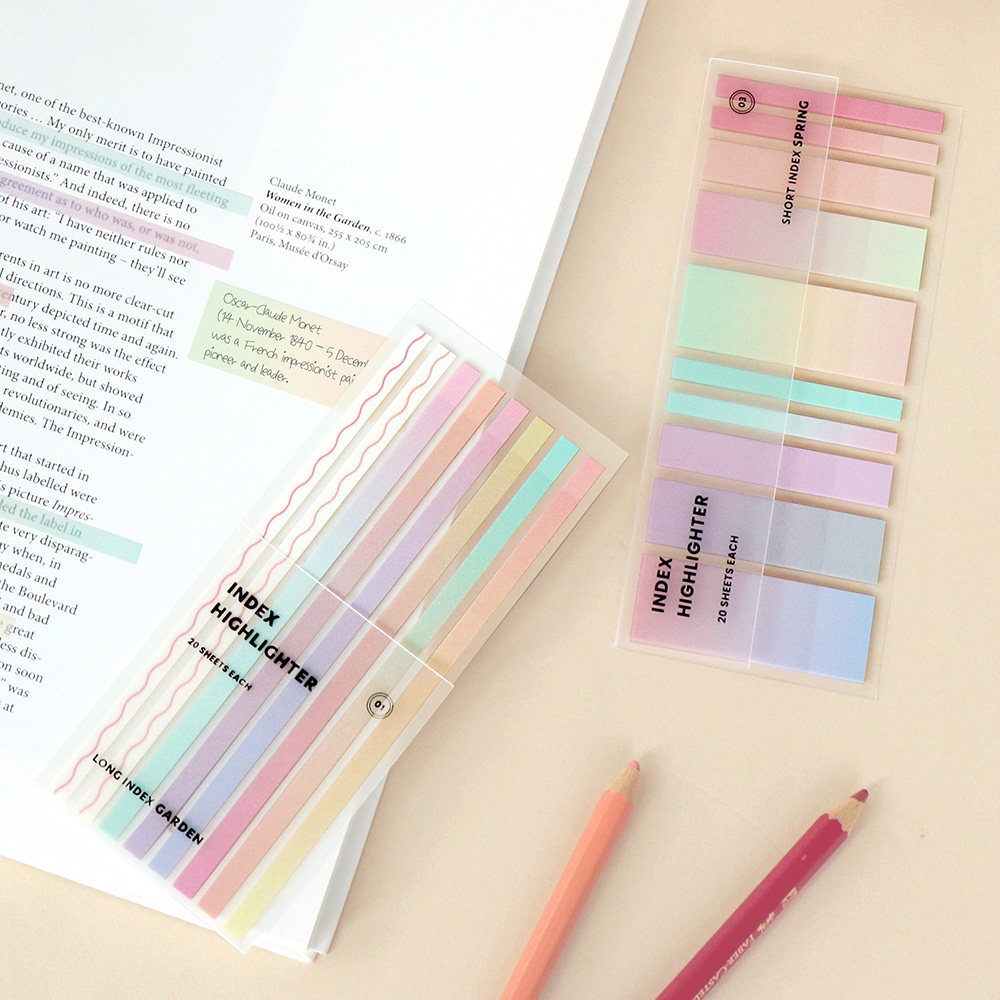 net, one of the best-known Impressionist
ories … My only merit is to have painted
oduce my impressions of the most fleeting
cause of a name that was applied to
essionists." And indeed, there is no
agreement as to who was, or was not,
of his art: "I have neither rules nor
or watch me painting – they'll see
rents in art is no more clear-cut
l directions. This is a motif that
entury depicted time and again.
r, no less strong was the effect
tly exhibited their works
ts worldwide, but showed
ting and of seeing. In so
revolutionaries, and were
demies. The Impression-
art that started in
hus labelled were
s picture Impres-
led the label in
te very disparag-
y when, in
medals and
the Boulevard
and bad
great
less dis-
on soon
" was
at
Claude Monet
Women in the Garden, c. 1866
Oil on canvas, 255 x 205 cm
(100⅓ x 80¾ in.)
Paris, Musée d'Orsay
Oscar-Claude Monet
(14 November 1840 – 5 Decem
was a French impressionist pai
pioneer and leader.
INDEX
HIGHLIGHTER
20 SHEETS EACH
01
LONG INDEX GARDEN
03
SHORT INDEX SPRING
INDEX
HIGHLIGHTER
20 SHEETS EACH
FABER-CASTELL